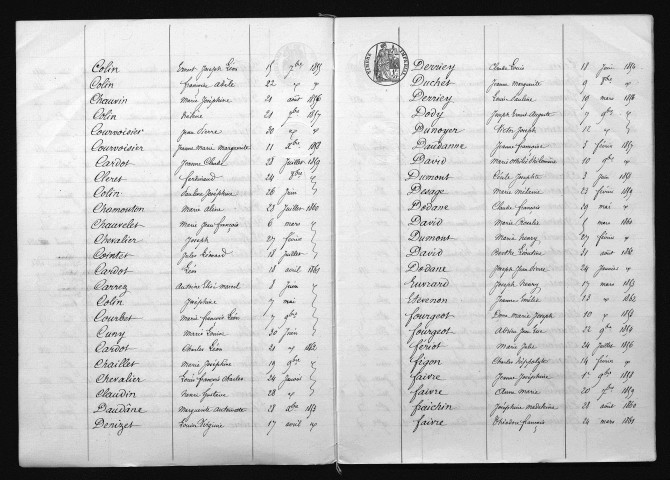 Colin Ernest Joseph Léon 15 7bre 1855
Colin Francine Adèle 22 " "
Chauvin Marie Joséphine 21 août 1856
Colin 21 1857
Courvoisier Jean Pierre 30 " "
Courvoisier Jeanne Marie Marguerite 11 Xbre 1858
Cardot Jeanne Claude 28 Juillet 1859
Cleret Ferdinand 24 8bre "
Colin Pauline Joséphine 26 Juin
Chamouton Marie Aline 23 Juillet 1860
Chauvelet Marie Jean François 6 mars "
Chevalier Joseph 27 février
Cointet Jules Léonard 18 Juillet
Cardot Léon 18 avril 1861
Carrez Antoine Elisé 8 Juin "
Colin Joséphine 7 mai
Courbet Marie François Léon 7 9bre
Cuny Marie Louise 30 Juin
Cardot Charles Léon 21 " 1862
Chaillet Marie Joséphine 19 9bre "
Chevalier Louis François Charles 24 Janvier
Claudin Gustave 28 "
Daudane Marguerite Antoinette 28 Xbre 1853
Denizet Louise Virginie 17 avril "
Derriey Claude Louis 18 Juin 1854
Duchet Jeanne Marguerite 9 8bre "
Derriey Louise Pauline 10 mars 1856
Dody Joseph Ernest Auguste 7 9bre "
Dunoyer Victor Joseph 12 " "
Daudanne Jeanne Françoise 3 février 1857
David Marie 10 9bre "
Dumont Cécile Josephte 3 Juin 1858
Desage Marie Mélanie 23 février 1859
Dodane Claude François 20 mai "
David Marie Rosalie 1 mars 1860
Dumont Marie Henry 27 février "
David Berthe Léontine 21 août 1861
Dodane Joseph 24 Janvier "
Euvrard Joseph Henry 17 mars 1853
Thevenon Jeanne Emilie 13 " 1862
Fourgeot Marie Joseph 10 " 1853
Fourgeot 22 9bre 1854
Feriot Marie Julie 24 Juillet 1856
Figon Charles Hippolyte 14 février "
Faivre Jeanne Joséphine 1er 9bre 1858
Faivre Anne Marie 20 7bre 1859
Fraichin Joséphine Madeleine 28 août 1860
Faivre Théodore François 24 mars 1861